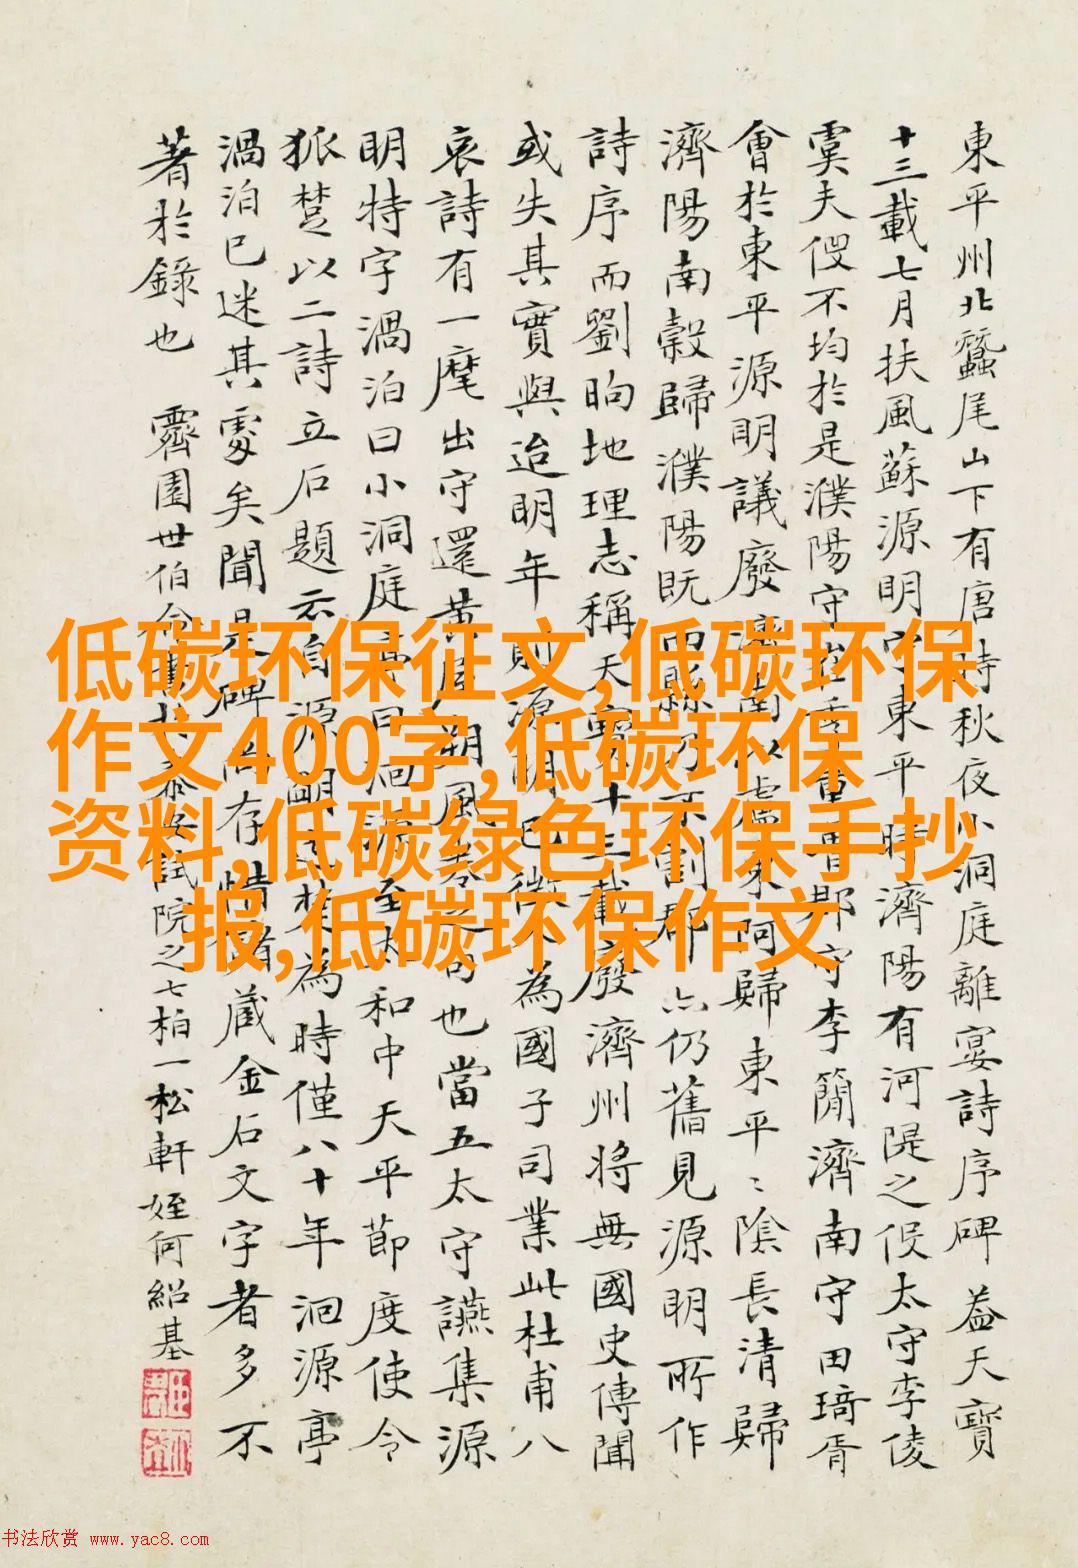 東平州北蠶尾山下有唐時秋夜小洞庭離宴詩序碑 葢天寶
十三載七月扶風蘇源明守東平時濟陽有河隄之役太守李倰
虞夫役不均於是濮陽守 會 郡守李簡濟南守田琦胥
會於東平源明議廢濟 以盧東阿歸東平〻陰長清歸
濟陽南穀歸濮陽既而 不割郡亦仍舊見源明所作
詩序而劉昫地理志稱天寶十三載廢濟州將無國史傳聞
或失其實與迨明年則源明已徵為國子司業此杜甫八
哀詩有一麾出守還黃 朔風 也當五太守讌集源
明特字渦泊曰小洞庭亭曰洄源至太和中天平節度使令
狐楚以二詩立石題云自源明 為時僅八十年洄源亭
渦泊已迷其處矣聞是碑尚存惜 蔵金石文字者多不
著於錄也 霽園世伯 試院之七柏一松軒 姪何紹基
低碳环保征文,低碳环保
作文400字,低碳环保
资料,低碳绿色环保手抄
报,低碳环保作文
书法欣赏 www.yac8.com